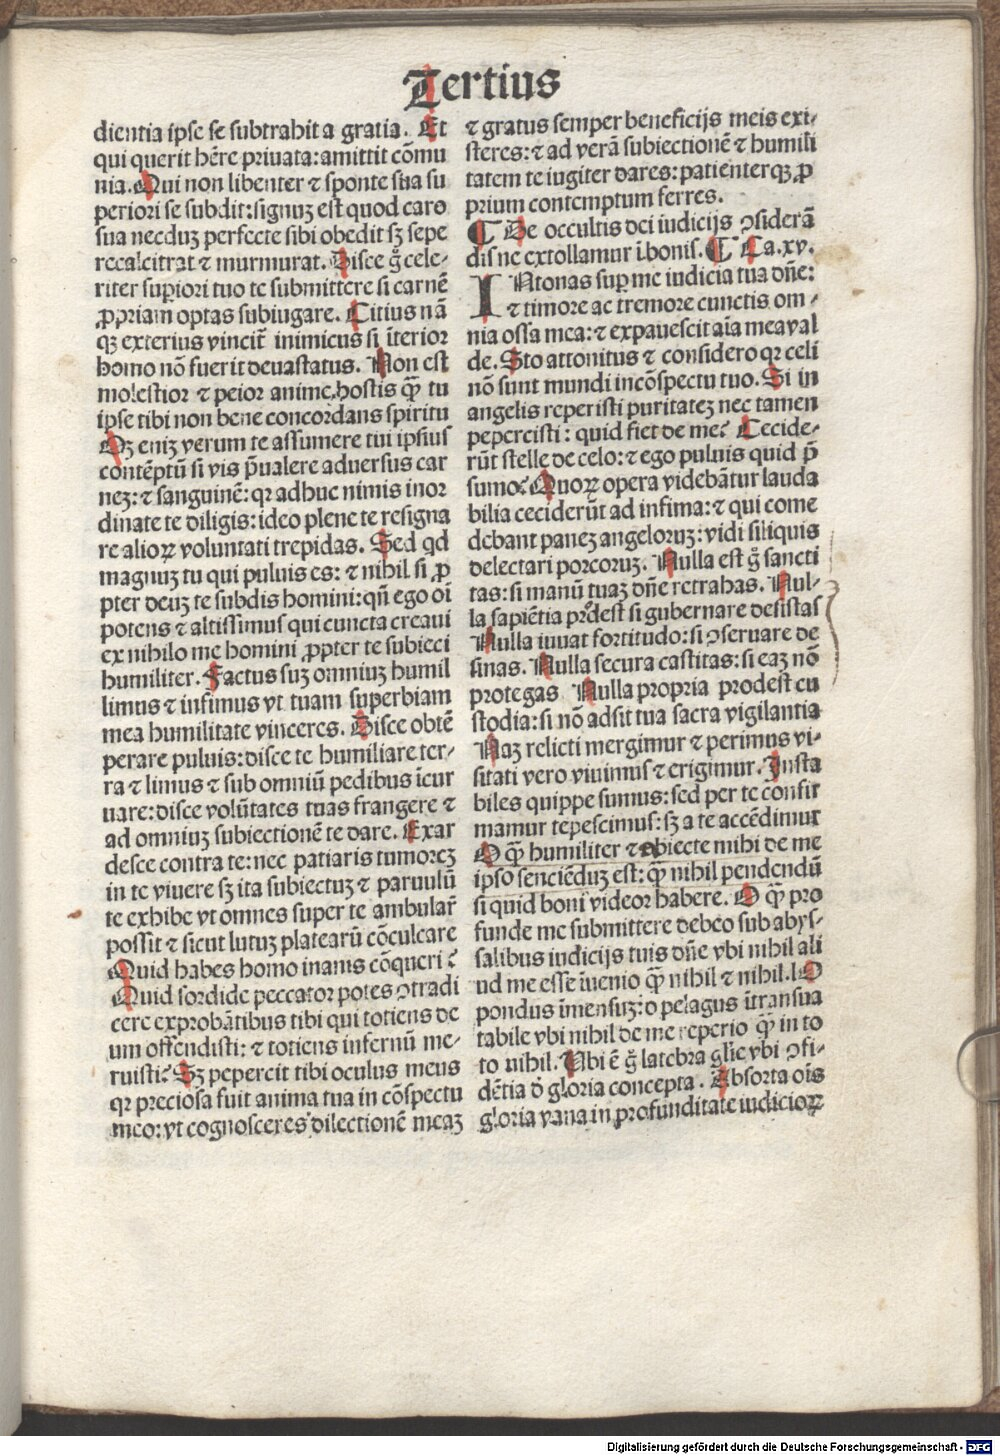 Tertius
dientia ipse se subtrahit a gratia. Et
qui querit hr̄e priuata: amittit cōmu
nia. Qui non libenter ⁊ sponte sua su
periori se subdit: signuꝫ est quod caro
sua necduꝫ perfecte sibi obedit sꝫ sepe
recalcitrat ⁊ murmurat. Disce g̊ cele-
riter suꝑiori tuo te submittere si carnē
ꝓpriam optas subiugare. Citius nā
qꝫ exterius vincit̄ inimicus si īterior
homo nō fuerit deuastatus. Non est
molestior ⁊ peior anime hostis q̄ꝫ tu
ipse tibi non bene concordans spiritu
Oꝫ eniꝫ verum te assumere tui ipsius
contēptū si vis p̄ualere aduersus car
neꝫ: ⁊ sanguinē: qꝛ adhuc nimis inor
dinate te diligis: ideo plene te resigna
re alioꝝ voluntati trepidas. Sed qd
magnuꝫ tu qui puluis es: ⁊ nihil si ꝓ
pter deuꝫ te subdis homini: qn̄ ego oī
potens ⁊ altissimus qui cuncta creaui
ex nihilo me homini ꝓpter te subieci
humiliter. Factus suꝫ omniuꝫ humil
limus ⁊ infimus vt tuam superbiam
mea humilitate vinceres. Disce obtē
perare puluis: disce te humiliare ter-
ra ⁊ limus ⁊ sub omniū pedibus īcur
uare: disce volūtates tuas frangere ⁊
ad omniuꝫ subiectionē te dare. Exar
desce contra te: nec patiaris tumoreꝫ
in te viuere sꝫ ita subiectuꝫ ⁊ paruulū
te exhibe vt omnes super te ambular̄
possit ⁊ sicut lutuꝫ platearū cōculcare
Quid habes homo inanis cōqueri?
Quid sordide peccator potes ꝯtradi
cere exprobātibus tibi qui totiens de
um offendisti: ⁊ totiens infernū me-
ruisti? Sꝫ pepercit tibi oculus meus
qꝛ preciosa fuit anima tua in cōspectu
meo: vt cognosceres dilectionē meaꝫ
⁊ gratus semper beneficijs meis exi-
steres: ⁊ ad verā subiectionē ⁊ humili
tatem te iugiter dares: patienterqꝫ ꝓ
prium contemptum ferres.
¶ De occultis dei iudicijs ꝯsiderā
dis ne extollamur ī bonis. ¶ Ca. xv.
INtonas suꝑ me iudicia tua dn̄e:
⁊ timore ac tremore cunctis om-
nia ossa mea: ⁊ expauescit aīa mea val
de. Sto attonitus ⁊ considero qꝛ celi
nō sunt mundi in cōspectu tuo. Si in
angelis reperisti puritateꝫ nec tamen
pepercisti: quid fiet de me? Cecide-
rūt stelle de celo: ⁊ ego puluis quid p̄
sumo? Quoꝝ opera videbātur lauda
bilia ceciderūt ad infima: ⁊ qui come
debant paneꝫ angeloruꝫ: vidi siliquis
delectari porcoruꝫ. Nulla est g̊ sancti
tas: si manū tuaꝫ dn̄e retrahas. Nul-
la sapiētia prodest si gubernare desistas
Nulla iuuat fortitudo: si ꝯseruare de
sinas. Nulla secura castitas: si eaꝫ nō
protegas. Nulla propria prodest cu
stodia: si nō adsit tua sacra vigilantia
Naꝫ relicti mergimur ⁊ perimus vi-
sitati vero viuimus ⁊ erigimur. Insta
biles quippe sumus: sed per te confir
mamur tepescimus: sꝫ a te accēdimur
O q̄ꝫ humiliter ⁊ abiecte mihi de me
ipso senciēduꝫ est: q̄ꝫ nihil pendendū
si quid boni videor habere. O q̄ꝫ pro
funde me submittere debeo sub abys-
salibus iudicijs tuis dn̄e vbi nihil ali
ud me esse īuenio q̄ꝫ nihil ⁊ nihil. O
pondus īmensuꝫ: o pelagus ītransna
tabile vbi nihil de me reperio q̄ꝫ in to
to nihil. Ubi ē g̊ latebra glīe vbi ꝯfi-
dētia d̓ gloria concepta. Absorta oīs
gloria vana in profunditate iudicioꝝ
Digitalisierung gefördert durch die Deutsche Forschungsgemeinschaft - DFG